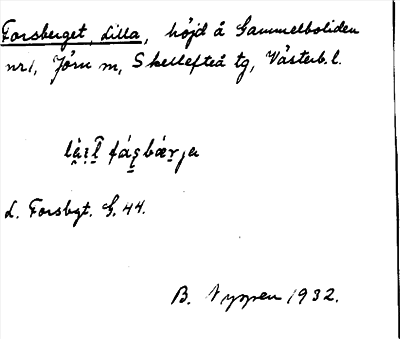 Forsberget, Lilla, höjd å Gammelboliden
nr1, Jörn m, Skellefteå tg, Västerb. l.
fása̠bærjə
L. Forsbgt. G. 44.
B. Nyppen 1932.